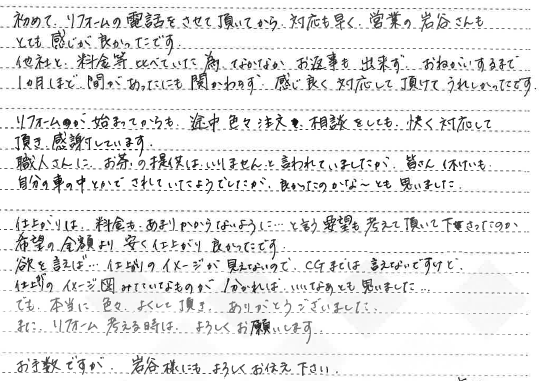 初めて、リフォームの電話をさせて頂いてから、対応も早く、営業の岩谷さんも
とても感じが良かったです。
他社と、料金等比べていた為、なかなか、お返事も出来ず、おねがいするまで
1ヵ月ほど、間があったにも関かわらず、感じ良く対応して頂けてうれしかったです。
リフォームが始まってからも、途中色々注文、相談をしても、快く対応して
頂き感謝しています。
職人さんに、お茶の提供はいりませんと言われていましたが、皆さん休けいも、
自分の車の中とかでされていたようでしたが、良かったのかな〜とも思いました。
仕上がりは、料金もあまりかからないように…と言う要望も考えて頂いて下さったのか
希望の金額より安く仕上がり良かったです。
欲を言えば…仕上りのイメージが見えないので、CGまでは言えないですけど、
仕上りのイメージ図みたいなものが1かあれば、いいなぁとも思いました…
でも、本当に色々よくして頂き、ありがとうございました。
また、リフォーム考える時は、よろしくお願いします。
お手数ですが、岩谷様にもよろしくお伝え下さい。